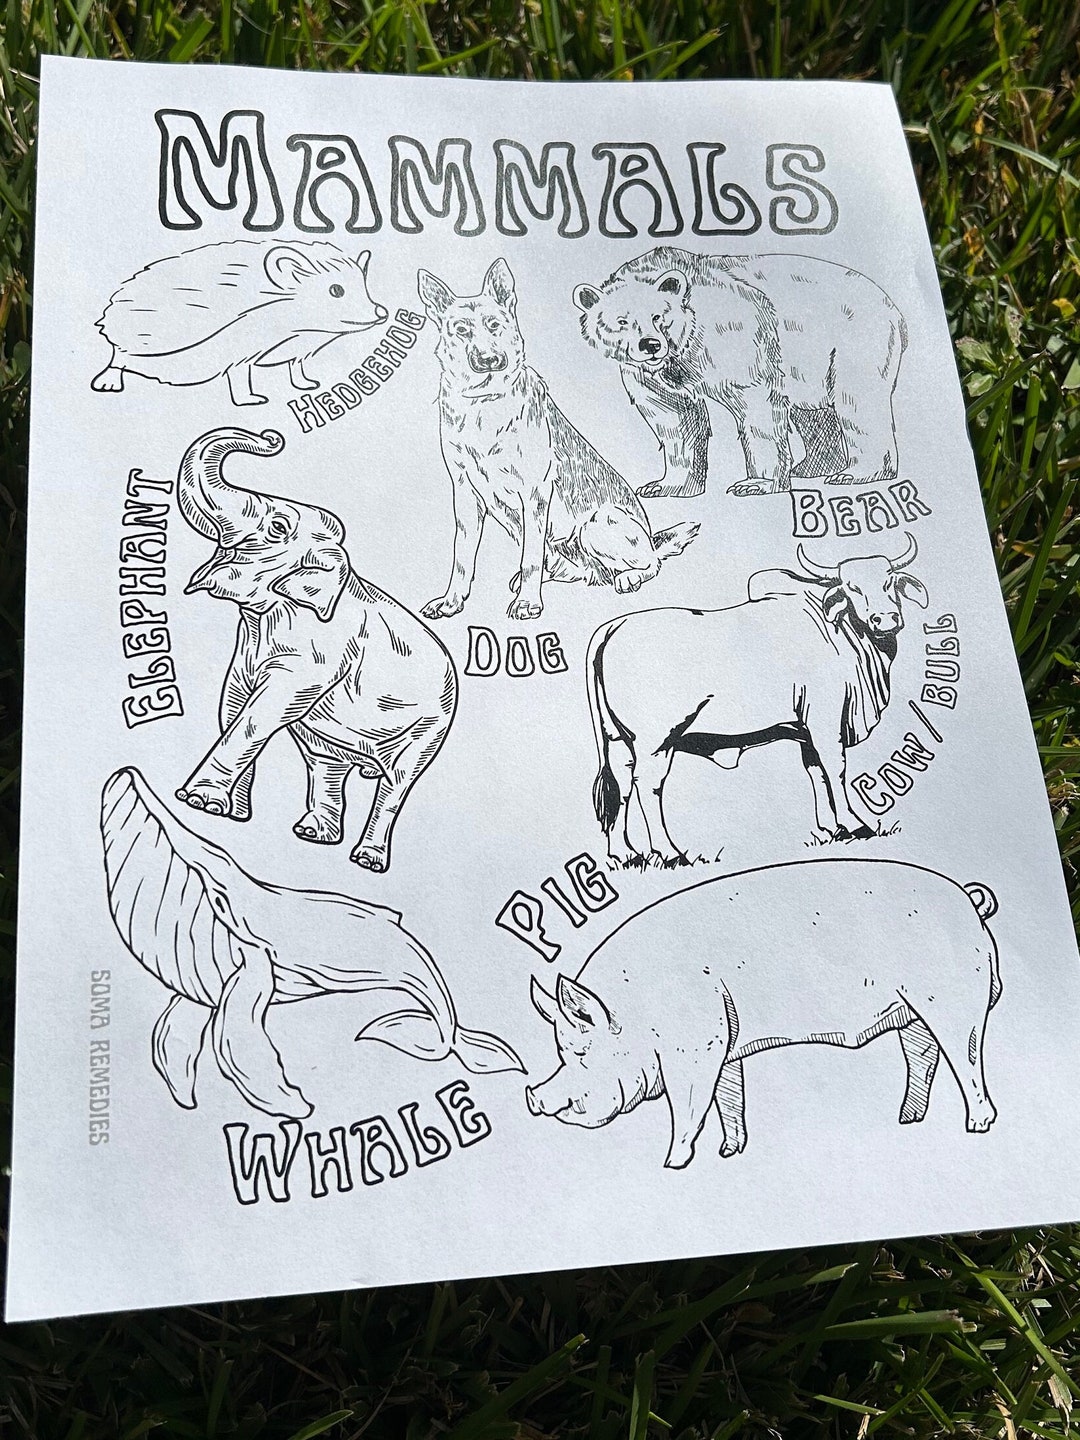 MAMMALS
HEDGEHOG
BEAR
ELEPHANT
DOG
COW/BULL
PIG
SOMA REMEDIES
WHALE